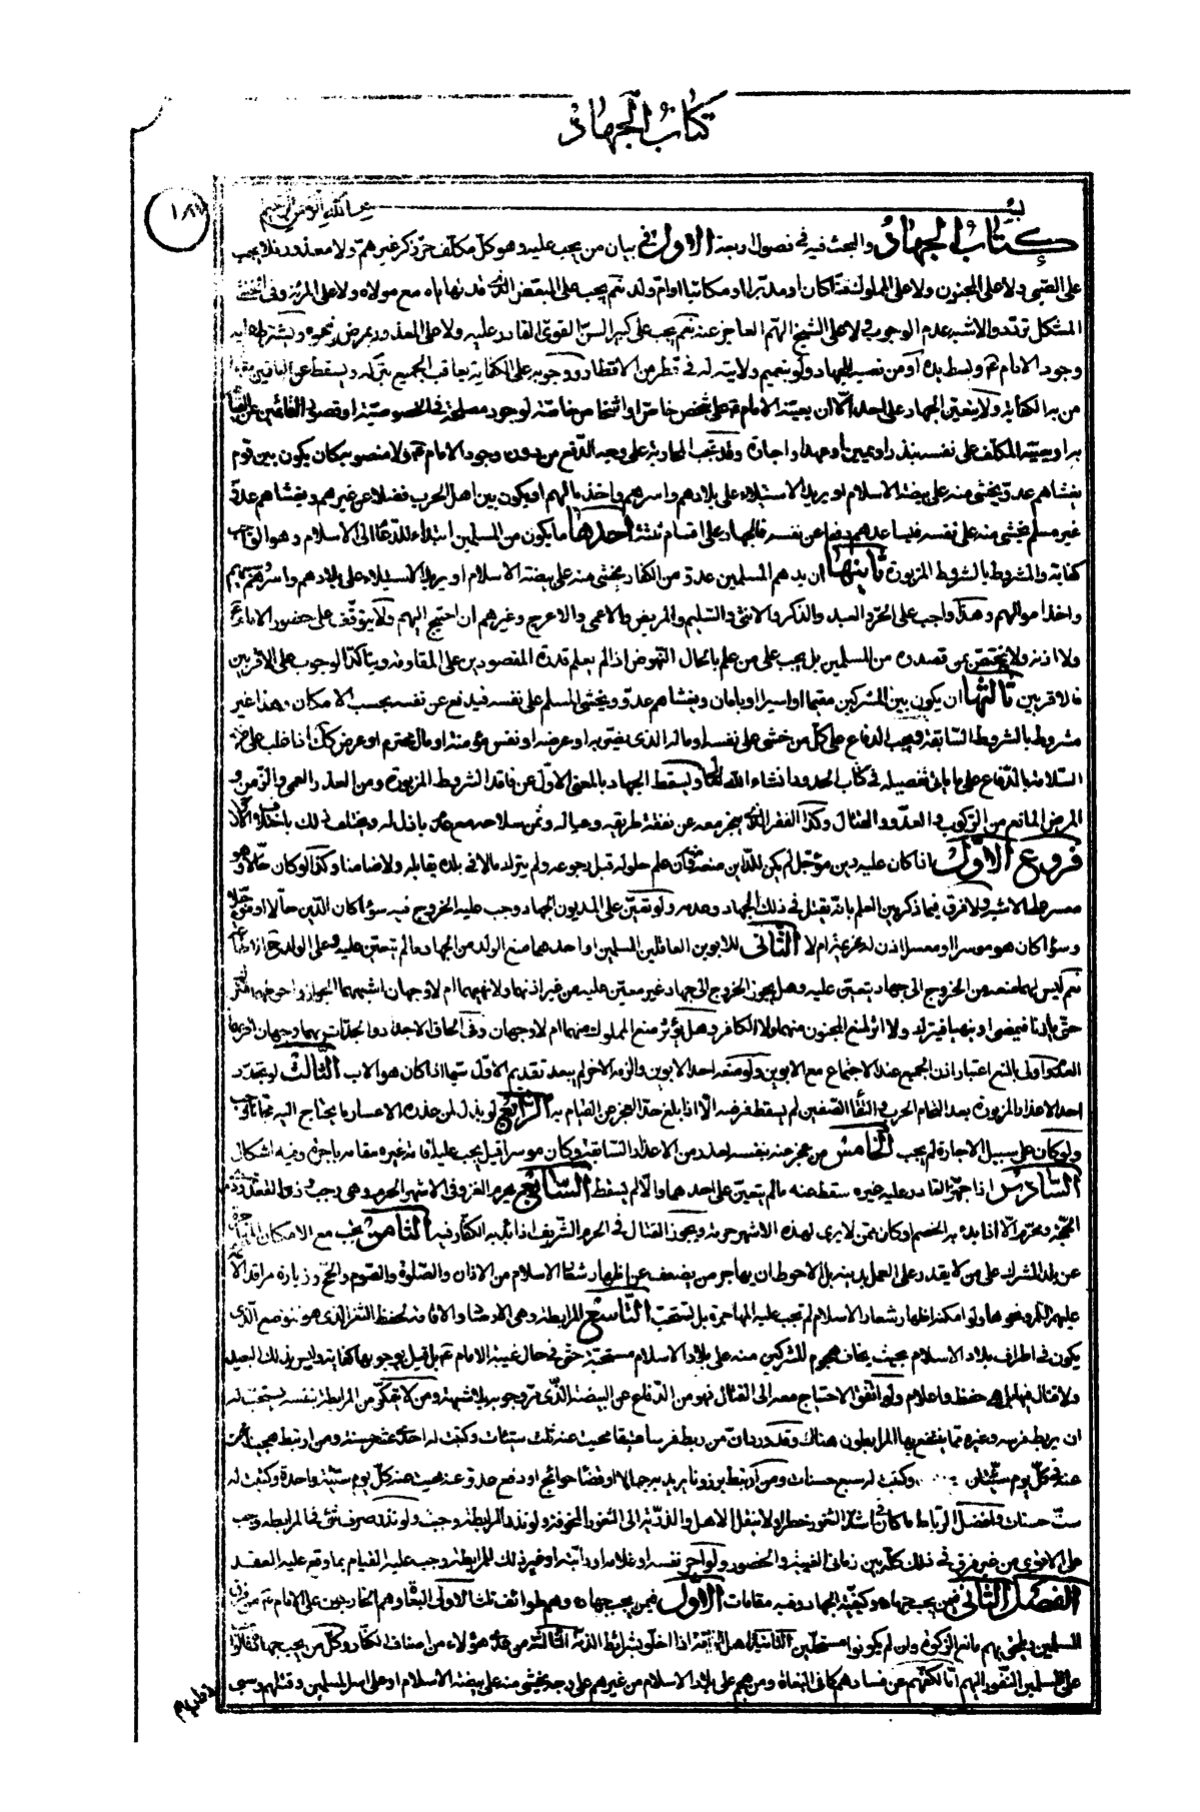 كتاب الجهاد
بسم الله الرحمن الرحيم
كتاب الجهاد والبحث فيه في فصول اربعة الاول في بيان من يجب عليه وهو كل مكلف حر ذكر غير هم ولا معذور فلا يجب
على الصبي ولا على المجنون ولا على المملوك قنا كان او مدبرا او مكاتبا او ام ولد نعم يجب على المبعض الذي قد نهاياه مع مولاه ولا على المرئة وفي الخنثى
المشكل تردد والاشبه عدم الوجوب ولا على الشيخ الهم العاجز عنه نعم يجب على كبير السن القوي القادر عليه ولا على المعذور بمرض ونحوه ويشترط فيه
وجود الامام ع وبسط يده او من نصبه للجهاد ولو بتعميم ولايته له في قطر من الاقطار ووجوبه على الكفاية يعاقب الجميع بتركه ويسقط عن الباقين بقيام
من به الكفاية ولا يتعين الجهاد على احد الا ان يعينه الامام ع على شخص خاص او اشخاص خاصة لوجود مصلحة في الخصوصية او قصور القائمين عن القيام
به او يعينه المكلف على نفسه بنذر او يمين او عهد او اجارة وقد تجب المحاربة على وجه الدفع من دون وجود الامام ع ولا منصوبه كان يكون بين قوم
يغشاهم عدو يخشى منه على بيضة الاسلام او يريد الاستيلاء على بلادهم واسرهم واخذ مالهم او يكون بين اهل الحرب فضلا عن غيرهم ويغشاهم عدو
غير مسلم يخشى منه على نفسه فيساعدهم دفعا عن نفسه فالجهاد على اقسام ثلثة احدها ما يكون من المسلمين ابتداء للدعاء الى الاسلام وهو الواجب
كفاية والمشروط بالشروط المزبورة ثانيها ان يدهم المسلمين عدو من الكفار يخشى منه على بيضة الاسلام او يريد الاستيلاء على بلادهم واسرهم وسبيهم
واخذ اموالهم وهذا واجب على الحر والعبد والذكر والانثى والسليم والمريض والاعمى والاعرج وغيرهم ان احتيج اليهم ولا يتوقف على حضور الامام ع
ولا اذنه ولا يختص بمن قصده من المسلمين بل يجب على من علم بالحال النهوض اذا لم يعلم قدرة المقصودين على المقاومة ويتاكد الوجوب على الاقربين
فالاقربين ثالثها ان يكون بين المشركين مقيما او اسيرا او بامان ويغشاهم عدو ويخشى المسلم على نفسه فيدفع عن نفسه بحسب الامكان وهذا غير
مشروط بالشروط السابقة ويجب الدفاع على كل من خشى على نفسه او ماله الذي يضر به او عرضه او نفس مؤمنة او مال محترم او عرض كك اذا غلب على ظنه
السلامة بالدفاع على ما ياتي تفصيله في كتاب الحدود انشاء الله تعالى ويسقط الجهاد بالمعنى الاول عن فاقد الشروط المزبورة ومن العذر العمى والزمن و
المرض المانع من الركوب والعدو والقتال وكذا الفقر الذي يعجز معه عن نفقة طريقه وعياله وثمن سلاحه مع عدم باذل له ويختلف ذلك باختلاف الاحوال
فروع الاول اذا كان عليه دين مؤجل لم يكن للداين منعه وان علم حلوله قبل رجوعه ولم يترك مالا في بلده يقابله ولا ضامنا وكذا لو كان حالا وهو
معسر على الاشبه ولا فرق فيما ذكر بين العلم بانه يقتل في ذلك الجهاد وعدمه ولو تعين على المديون الجهاد وجب عليه الخروج فيه سواء كان الدين حالا او مؤجلا
وسواء كان هو موسرا او معسرا اذن له غريمه ام لا الثاني للابوين العاقلين المسلمين او احدهما منع الولد من الجهاد ما لم يتعين عليه وعلى الولد
نعم ليس لهما منعه من الخروج الى جهاد يتعين عليه وهل يجوز الخروج الى جهاد غير معين عليه من غير اذنهما ولا نهيهما ام لا وجهان اشبههما الجواز واحوطهما الترك
حتى ياذنا فيمضي او ينهيا فيترك ولا اثر لمنع المجنون منهما ولا الكافر وهل يؤثر منع المملوك منهما ام لا وجهان وفي الحاق الاجداد والجدات بهما وجهان
بالمنع اعتبار اذن الجميع عند الاجتماع مع الابوين ولو منعه احد الابوين والزمه الاخر لم يبعد تقديم الاول سيما اذا كان هو الاب الثالث لو تجدد
احد الاعذار المزبورة بعد التحام الحرب والتقاء الصفين لم يسقط فرضه الا اذا بلغ حد العجز عن القيام به الرابع لو بذل لمن عذره الاعسار ما يحتاج اليه مجانا وجب
ولو كان على سبيل الاجارة لم يجب الخامس من عجز عنه بنفسه لعذر من الاعذار السابقة وكان موسرا قيل يجب عليه اقامة غيره مقامه باجرة وفيه اشكال
السادس اذا جهز القادر عليه غيره سقط عنه ما لم يتعين على احدهما والا لم يسقط السابع يحرم الغزو في الاشهر الحرم وهي رجب وذو القعدة وذو
الحجة ومحرم الا اذا بدء به الخصم او كان ممن لا يرى لهذه الاشهر حرمة ويجوز القتال في الحرم الشريف اذا بدء به الكفار فيه الثامن يجب مع الامكان المهاجرة
عن بلد الشرك على من لا يقدر على العمل بدينه بل الاحوط ان يهاجر من يضعف عن اظهار شعائر الاسلام من الاذان والصلوة والصوم والحج وزيارة مراقد الائمة
عليهم السلام ونحوها ولو امكنه اظهار شعار الاسلام لم تجب عليه المهاجرة بل تستحب التاسع المرابطة وهي الارصاد والاقامة لحفظ الثغر الذي هو موضع الذي
يكون في اطراف بلاد الاسلام بحيث يخاف هجوم المشركين منه على بلاد الاسلام مستحبة حتى في حال غيبة الامام ع بل قيل بوجوبها كفاية وليس بذلك البعيد
ولا قتال فيها بل هي حفظ واعلام ولو اتفق الاحتياج معه الى القتال فهو من الدفاع عن البيضة الذي مر وجوبه بلا شبهة ومن لا يتمكن من المرابطة بنفسه يستحب له
ان يربط فرسه وغيره مما ينتفع بها المرابطون هناك وقد ورد ان من ربط فرسا عتيقا محيت عنه ثلث سيئات وكتبت له احدى عشر حسنة ومن ارتبط هجينا محيت
عنه في كل يوم سيئتان وكتبت له سبع حسنات ومن ارتبط برذونا يريد به جمالا او قضاء حوائج او دفع عدو عنه محيت عنه كل يوم سيئة واحدة وكتبت له
ست حسنات وافضل الرباط ما كان في اشد الثغور خطرا ولا ينقل الاهل والذرية الى الثغور المخوفة ولو نذر المرابطة وجبت ولو نذر صرف شيء في المرابطة وجب
على الاقوى من غير فرق في ذلك كله بين زماني الغيبة والحضور ولو آجر نفسه او غلامه او دابته او غير ذلك للمرابطة وجب عليه القيام بما وقع عليه العقد
الفصل الثاني فيمن يجب جهاده وكيفية الجهاد وفيه مقامات الاول فيمن يجب جهاده وهم طوائف ثلث الاولى البغاة وهم الخارجين على الامام ع من فرق
المسلمين ويلحق بهم مانع الزكوة وان لم يكونوا مستحلين الثانية اهل الذمة اذا اخلوا بشرائط الذمة الثالثة من عدا هؤلاء من اصناف الكفار وكل من يجب جهاده فالواجب
على المسلمين النفور اليهم اما لكفهم عن فسادهم كما في البغاة ومن هجم على بلاد الاسلام من غيرهم على وجه يخشى منه على بيضة الاسلام او على اسر المسلمين وقتلهم وسبي